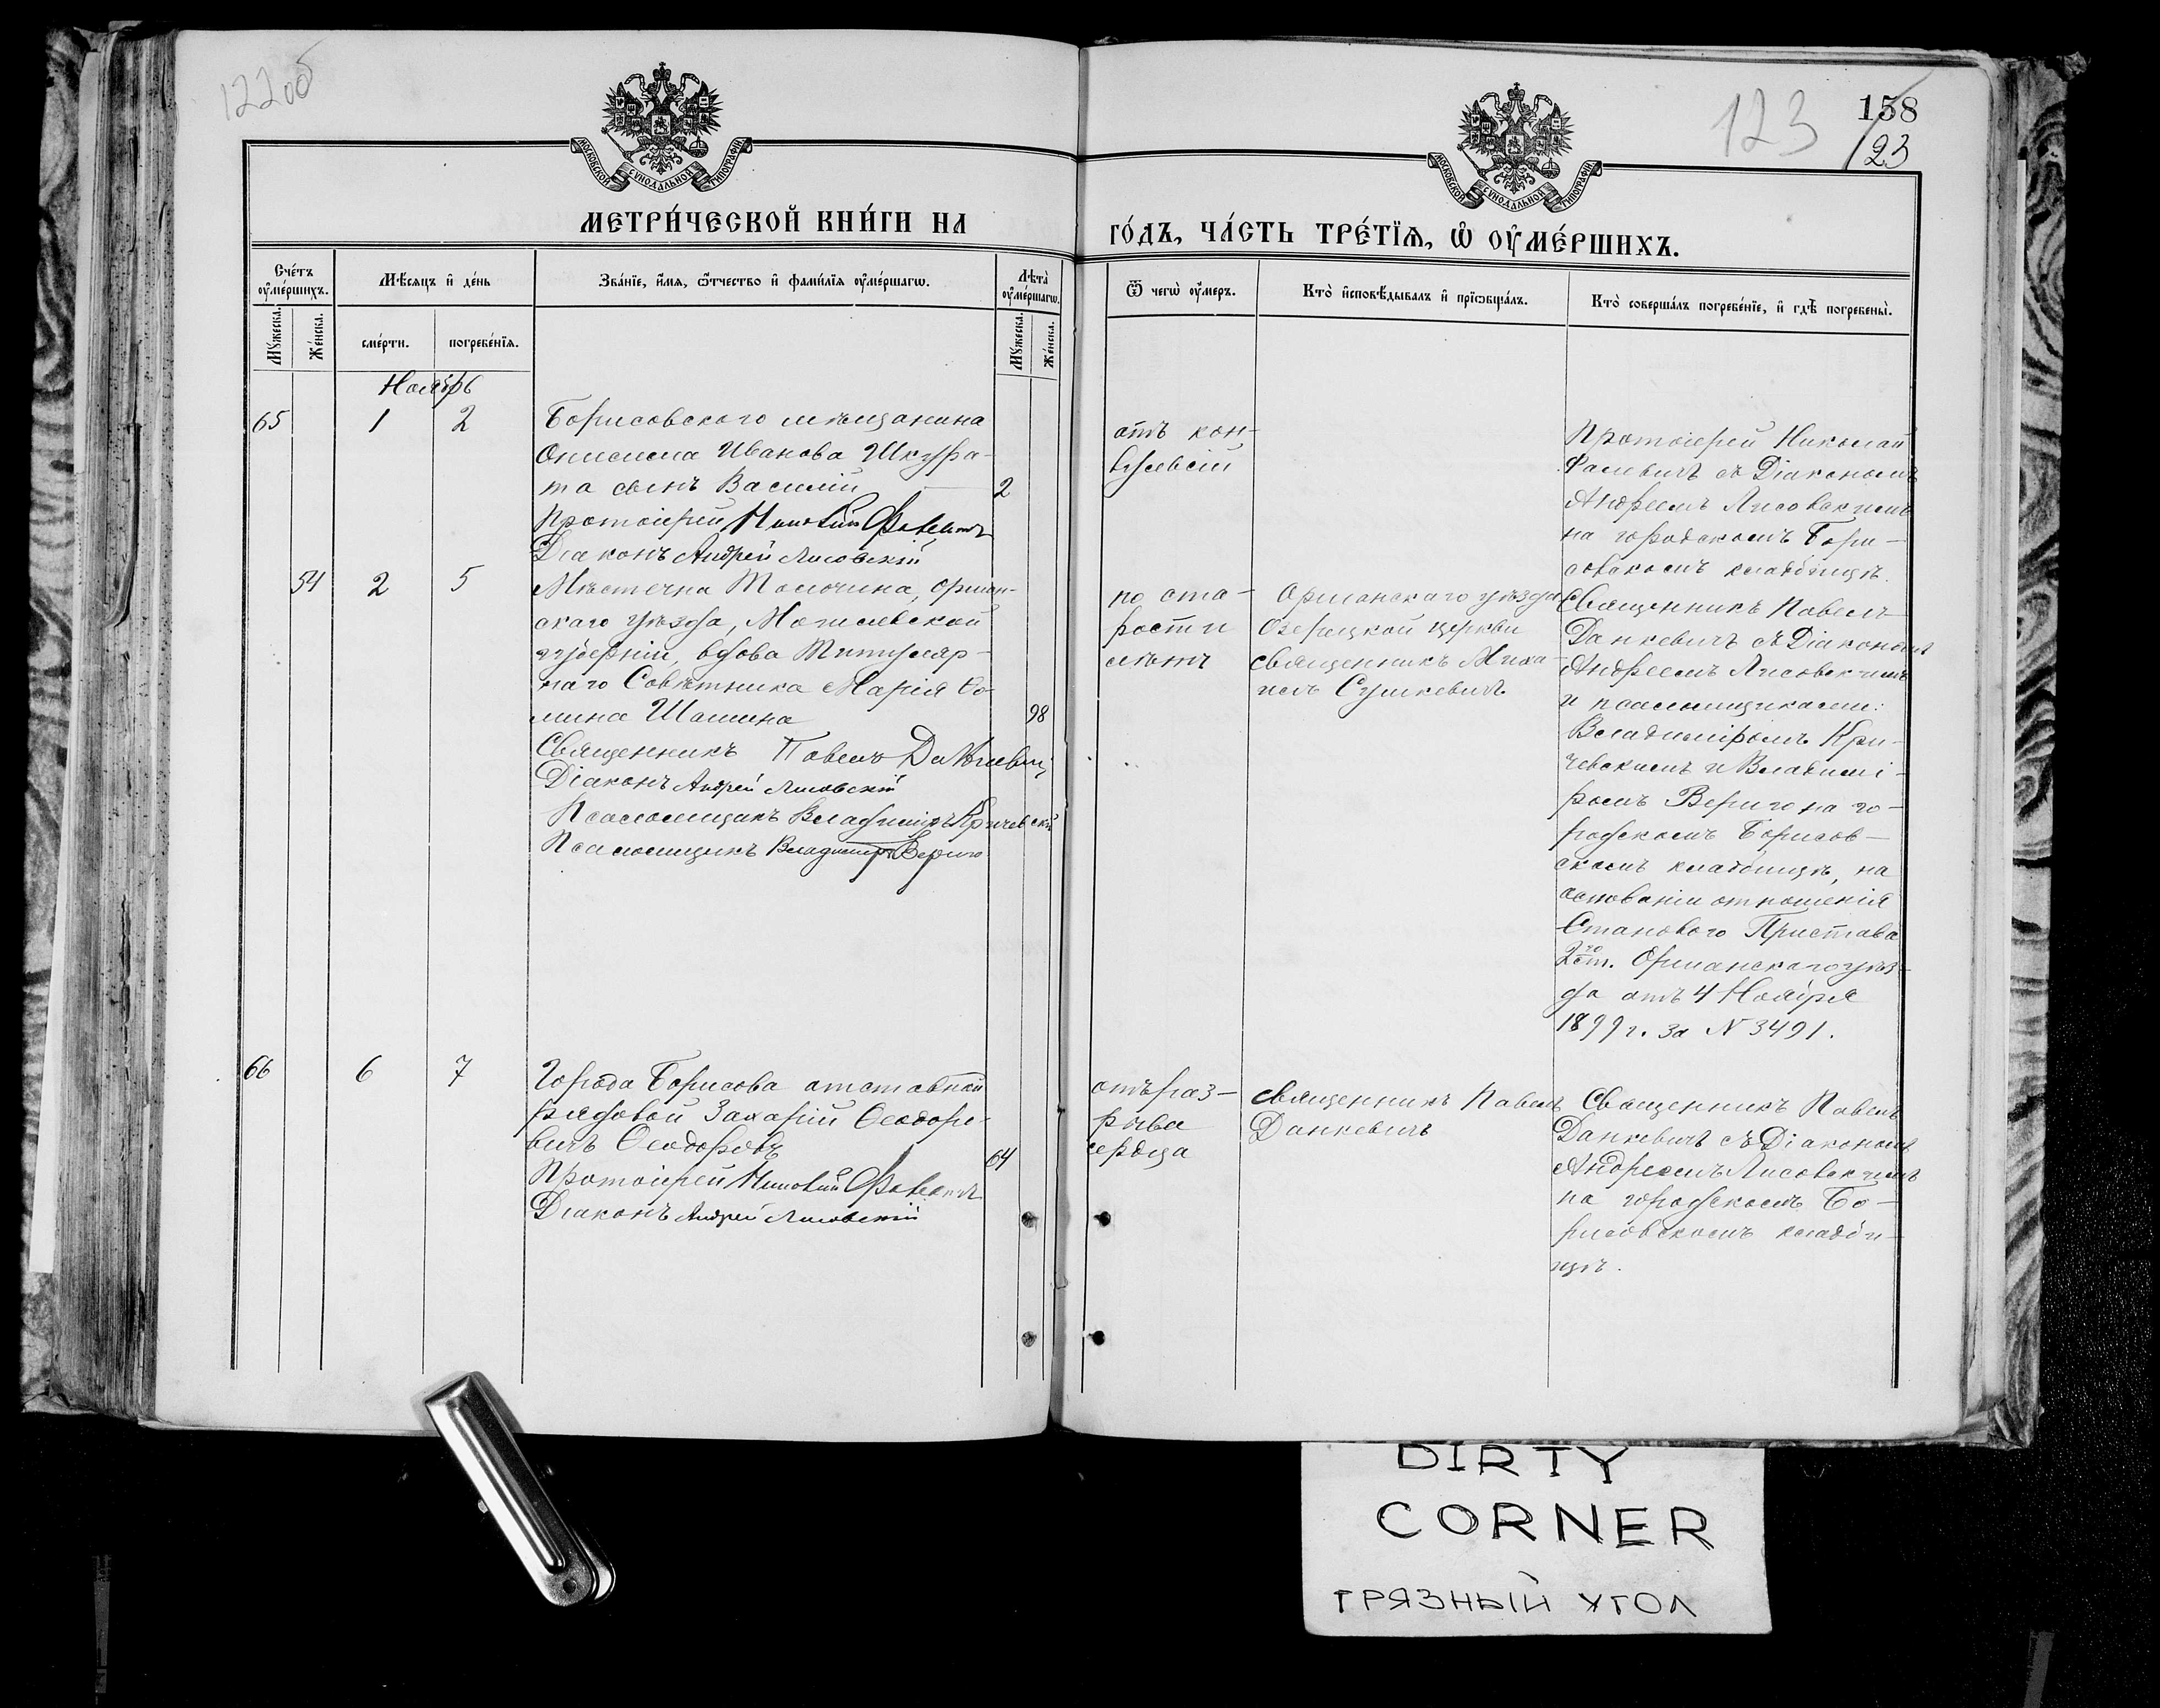 12206
123
158
123
МОСКОВСКОЙ СУНОДАЛЬНОЙ ТИПОГРАФІИ
МОСКОВСКОЙ СУНОДАЛЬНОЙ ТИПОГРАФІИ
МЕТРИ́ЧЕСКОЙ КНИ́ГИ НА
ГО́ДЪ, ЧА́СТЬ ТРЕ́ТЇѦ, Ѡ҆ ОУ҆МЕ́РШИХЪ.
Сче́тъ оу҆ме́ршихъ.
Мꙋ́жеска.
Же́нска.
Мѣ́сяцъ и҆ де́нь
сме́рти.
погребе́нїѧ.
Зва́нїе, и҆́мѧ, ѻ҆́тчество и҆ фами́лїѧ оу҆ме́ршагѡ.
Лѣ́та оу҆ме́ршагѡ.
Мꙋ́жеска.
Же́нска.
Ѿ чегѡ̀ оу҆́меръ.
Кто̀ и҆сповѣ́дывалъ и҆ прїѡбща́лъ.
Кто̀ соверша́лъ погребе́нїе, и҆ гдѣ̀ погребены̀.
Ноябрь
65
1
2
Борисовского мѣщанина
Онисима Иванова Шкура-
та сынъ Василій
2
Протоіерей Николай Фалевичъ
Діаконъ Андрей Лисовскій
отъ кон-
вульсій
Протоіерей Николай
Фалевичъ съ Діакономъ
Андреемъ Лисовскимъ
на городскомъ Бори-
совскомъ кладбищѣ.
54
2
5
Мѣстечка Толочина, оршан-
скаго уѣзда, Могилевской
губерніи, вдова Титуляр-
наго Совѣтника Марія Ѳо-
мина Шашина
98
Священникъ Павелъ Данкевичъ
Діаконъ Андрей Лисовскій
Псаломщикъ Владиміръ Кричевскій
Псаломщикъ Владиміръ Вериго
по ста-
рости
лѣтъ
Оршанскаго уѣзда
Озерицкой церкви
священникъ Миха-
илъ Сушкевичъ
Священникъ Павелъ
Данкевичъ съ Діакономъ
Андреемъ Лисовскимъ
и псаломщиками:
Владиміромъ Кри-
чевскимъ и Владимі-
ромъ Вериго на го-
родскомъ Борисов-
скомъ кладбищѣ, на
основаніи отношенія
Станового Пристава
2го ст. Оршанскаго уѣз-
да отъ 4 Ноября
1899 г. за N 3491.
66
6
7
Города Борисова отставной
рядовой Захарій Ѳеодоро-
вичъ Ѳеодоровъ
64
Протоіерей Николай Фалевичъ
Діаконъ Андрей Лисовскій
отъ раз-
рыва
сердца
священникъ Павелъ
Данкевичъ
Священникъ Павелъ
Данкевичъ съ Діакономъ
Андреемъ Лисовскимъ
на городскомъ Бо-
рисовскомъ кладби-
щѣ.
DIRTY
CORNER
ГРЯЗНЫЙ УГОЛ